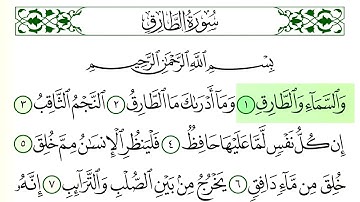 سُورَةُ الطَّارِقِ
بِسْمِ اللَّهِ الرَّحْمَٰنِ الرَّحِيمِ
وَالسَّمَاءِ وَالطَّارِقِ ١ وَمَا أَدْرَىٰكَ مَا الطَّارِقُ ٢ النَّجْمُ الثَّاقِبُ ٣
إِن كُلُّ نَفْسٍ لَّمَّا عَلَيْهَا حَافِظٌ ٤ فَلْيَنظُرِ الْإِنسَٰنُ مِمَّ خُلِقَ ٥
خُلِقَ مِن مَّاءٍ دَافِقٍ ٦ يَخْرُجُ مِنۢ بَيْنِ الصُّلْبِ وَالتَّرَائِبِ ٧ إِنَّهُۥ